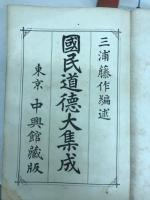 三浦藤作編述
國民道德大集成
東京 中興館藏版